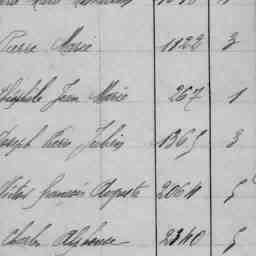 Pierre Marie 1122 3
Théophile Jean Marie 267 1
Joseph Pierre Julien 1365 3
Victor François Auguste 2064 5
Charles Alphonse 2340 5